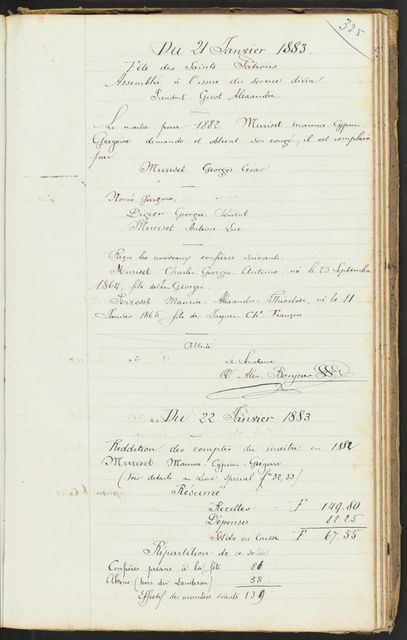 325
Du 21 Janvier 1883
Fête des Saints Patrons
Assemblée à l'issue du service divin
Président Girot Alexandre
Le maître pour 1882 Muriset Maurice-Cyprien-
Grégoire demande et obtient son congé, il est remplacé
par
Muriset Georges César
Nommés Garçons:
Divier Georges-Clément
Muriset Antoine-Luc
Reçu les nouveaux confrères suivants:
Muriset Charles-Georges-Antoine, né le 23 Septembre
1864, fils de Georges
Perroset Maurice-Alexandre-Théodose, né le 11
Janvier 1865, fils de Jaques-Chs François
Attesté
Le Secrétaire
Alex Bonjour
Du 22 Janvier 1883
Reddition des comptes du maître en 1882
Muriset Maurice-Cyprien-Grégoire
(Voir détails au Livre spécial fos 32, 33)
Résumé
Recettes F 149.80
Dépenses 82.25
Solde en Caisse F 67.55
Répartition de ce solde
Confrères présents à la fête
Absents (hors du Landeron) 58
Effectif des membres vivants 139